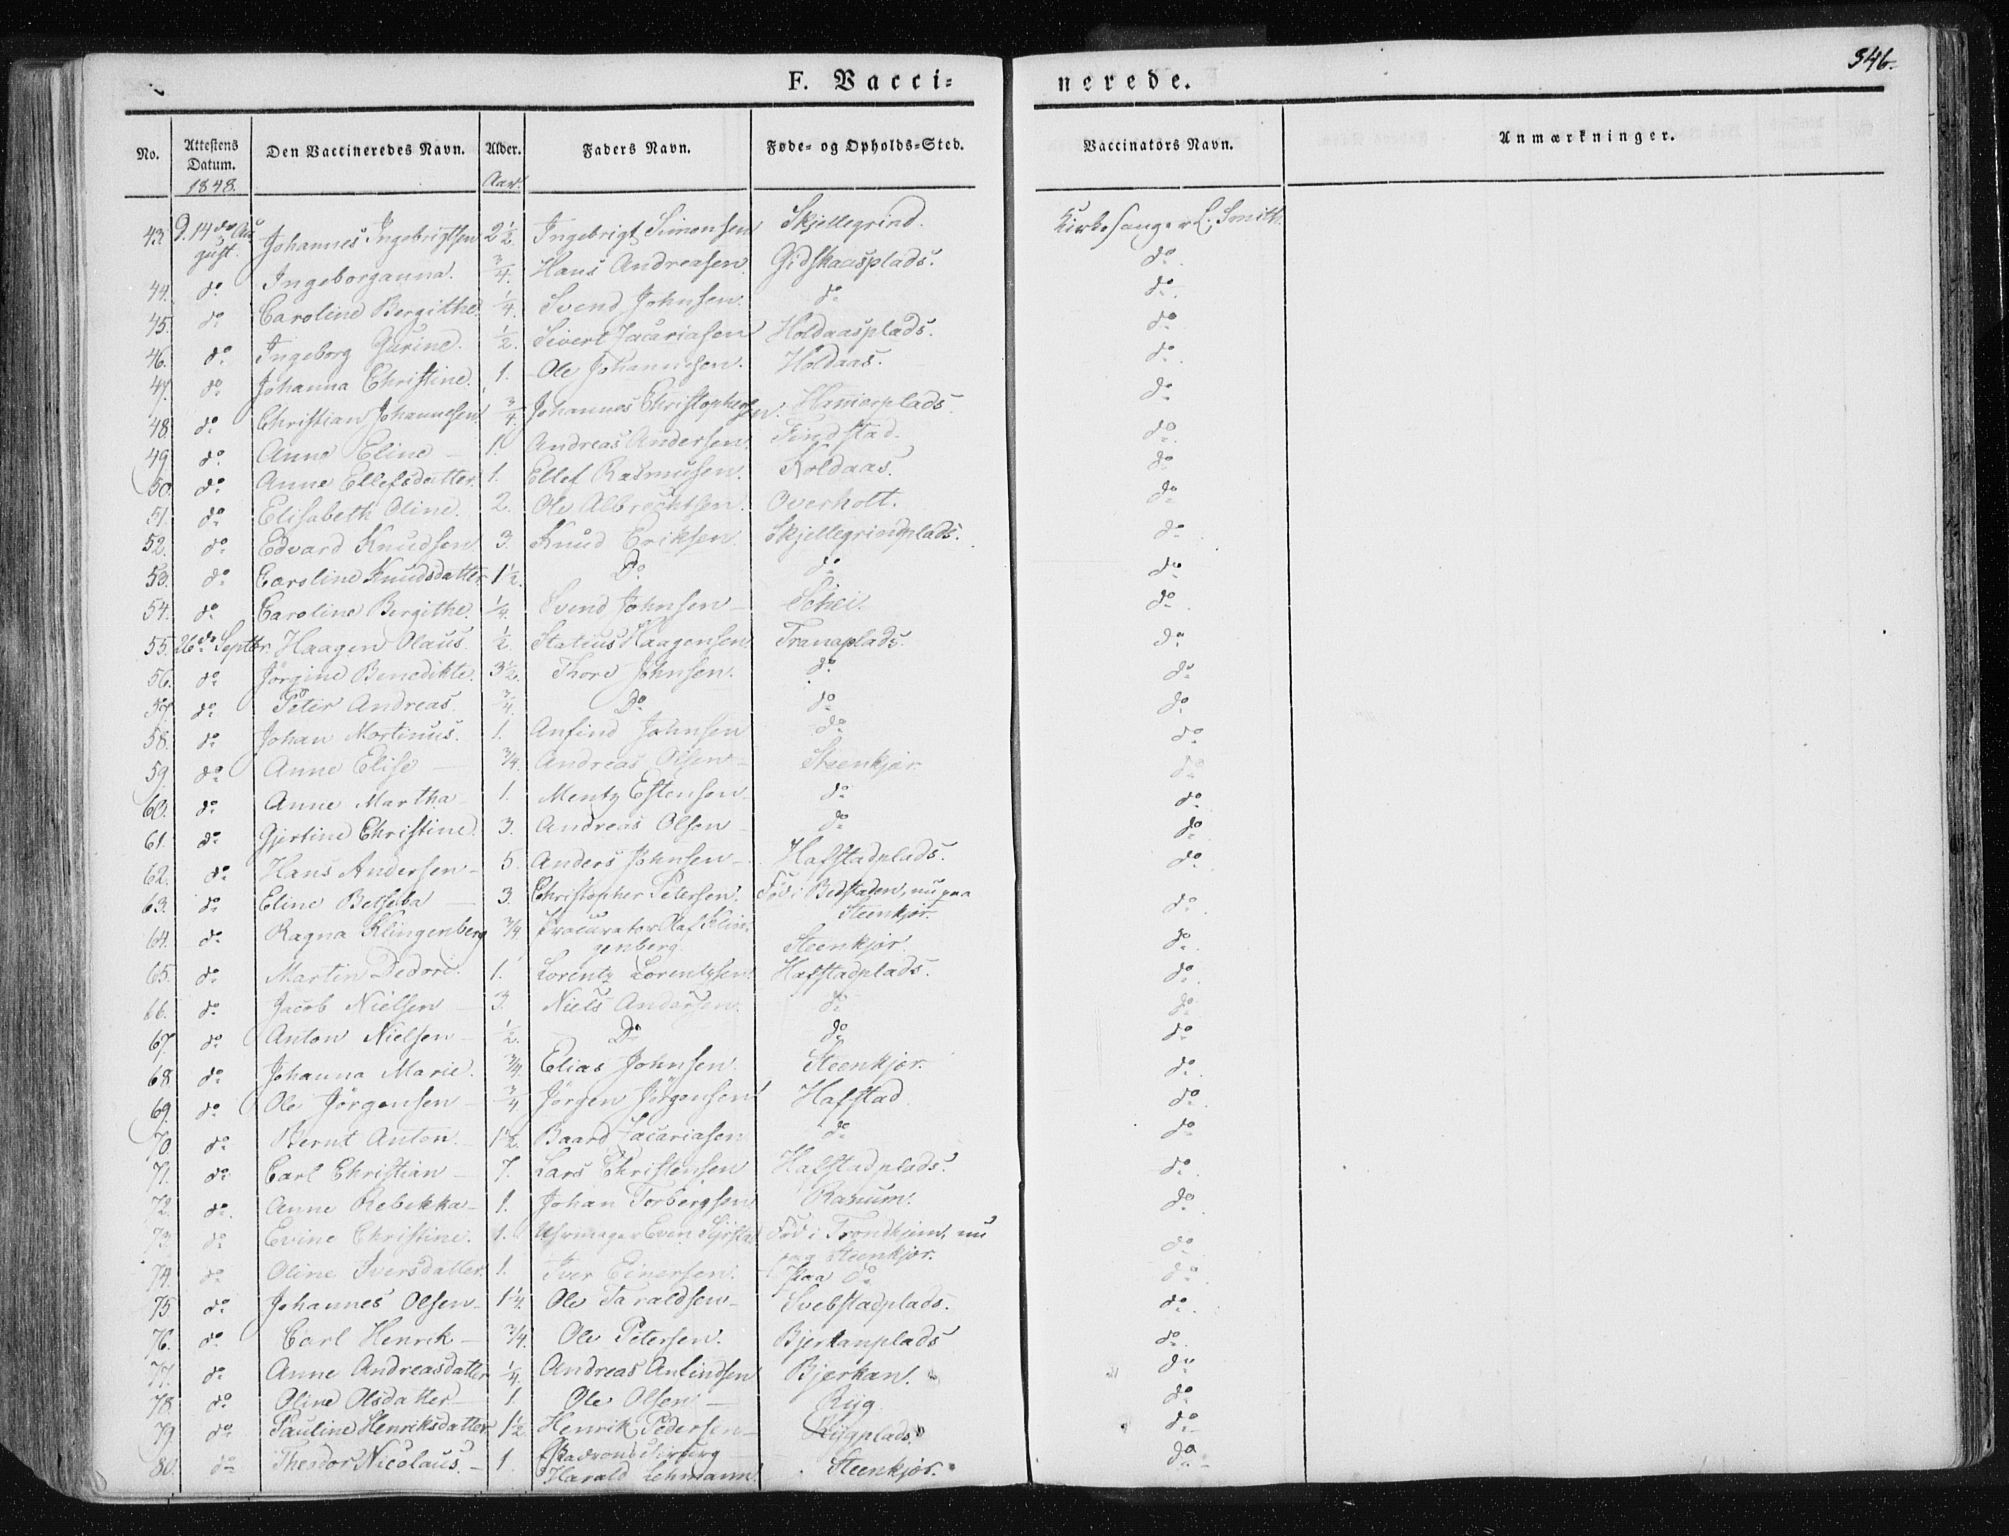 346.
F. Vacci-nerede.
No. Attestens Datum. Den Vaccineredes Navn. Alder. Faders Navn. Føde- og Opholds-Sted. Vaccinators Navn. Anmærkninger.
1848. Aar.
43. D. 14de August. Johannes Ingebrigtsen 2 1/2. Ingebrigt Simonsen Skjellegrind. Kirkesanger L. Smith.
44. do Ingeborganna. 3/4. Hans Andreasen Gidskaasplads. do
45. do Caroline Bergithe. 1/4. Svend Johnsen. do do
46. do Ingeborg Gurine. 1/2. Sivert Zacariasen Holdaasplads. do
47. do Johanna Christine. 1. Ole Johannesen. Holdaas. do
48. do Christian Johannesen 3/4. Johannes Christophersen. Hammerplads. do
49. do Anne Eline 1. Andreas Andersen. Findstad. do
50. do Anne Ellefsdatter. 1. Ellef Rasmusen. Koldaas. do
51. do Elisabeth Oline. 2. Ole Albrechtsen. Overholt. do
52. do Edvard Knudsen 3. Knud Eriksen Skjellegrindplads. do
53. do Caroline Knudsdatter 1 1/2. Do do do
54. do Caroline Bergithe. 1/4. Svend Johnsen Schei. do
55. 26de Septbr. Haagen Olaus. 1/2. Statius Haagensen Tranaplads. do
56. do Jörgine Benedikte. 3 1/2. Thore Johnsen. do do
57. do Peter Andreas. 3/4. Do do do
58. do Johan Martinus. 1. Anfind Johnsen do do
59. do Anne Elise 3/4. Andreas Olsen Steenkjær do
60. do Anne Martha 1. Mentz Estensen do do
61. do Gjertine Christine. 3. Andreas Olsen do do
62. do Hans Andersen 5. Anders Johnsen Hafstadplads. do
63. do Eline Betseba 3. Christopher Petersen. Föd i Bedstaden, nu paa Steenkjør. do
64. do Ragna Klingenberg 3/4 Procurator Olaf Klingenberg. Steenkjør. do
65. do Martin Dedori. 1. Lorentz Lorentzsen Hafstadplads. do
66. do Jacob Nielsen 3. Niels Andersen. do do
67. do Anton Nielsen 1/2. Do do do
68. do Johanna Marie. 3/4. Elias Johnsen. Steenkjør. do
69. do Ole Jörgensen 3/4 Jörgen Jörgensen Hafstad do
70. do Bernt Anton. 1 1/2. Baard Zacariasen do do
71. do Carl Christian 7. Lars Christensen Hafstadplads. do
72. do Anne Rebekka 1. Johan Torbergsen Ranum. do
73. do Evine Christine. 1. Uhrmager Even Föd i Trondhjem, nu paa Steenkjør. do
74. do Oline Iversdatter. 1. Iver Einersen. paa do do
75. do Johannes Olsen 1 1/4. Ole Taraldsen Svebstadplads. do
76. do Carl Henrik 3/4. Ole Petersen. Bjerkanplads do
77. do Anne Andreasdatter 1/4. Andreas Anfindsen Bjerkan. do
78. do Oline Olsdatter 1. Ole Olsen Ryg. do
79. do Pauline Henriksdatter 1 1/2. Henrik Pedersen Rygplads. do
80. do Theodor Nicolaus. 1. Harald Lehmann. Steenkjør. do